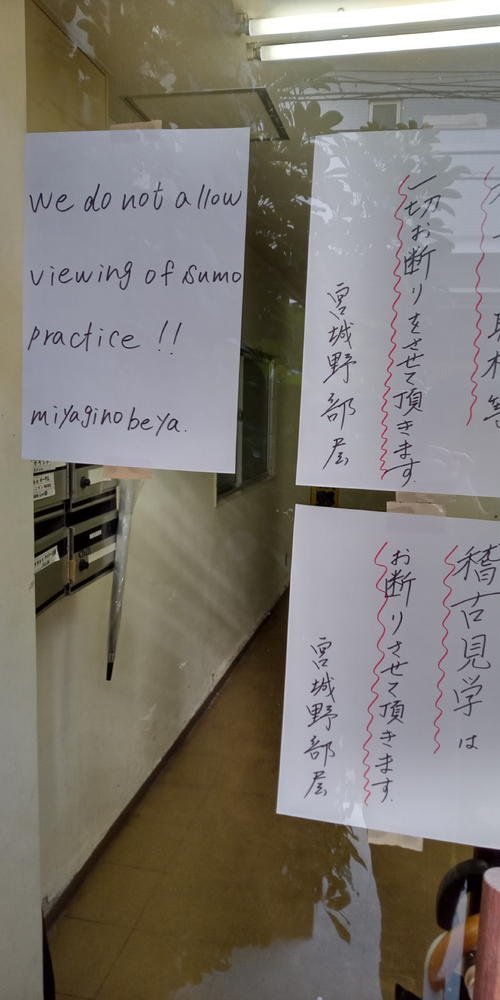 We do not allow
viewing of sumo
practice !!
miyaginobeya.
取材等
一切お断りをさせて頂きます
宮城野部屋
稽古見学は
お断りさせて頂きます
宮城野部屋